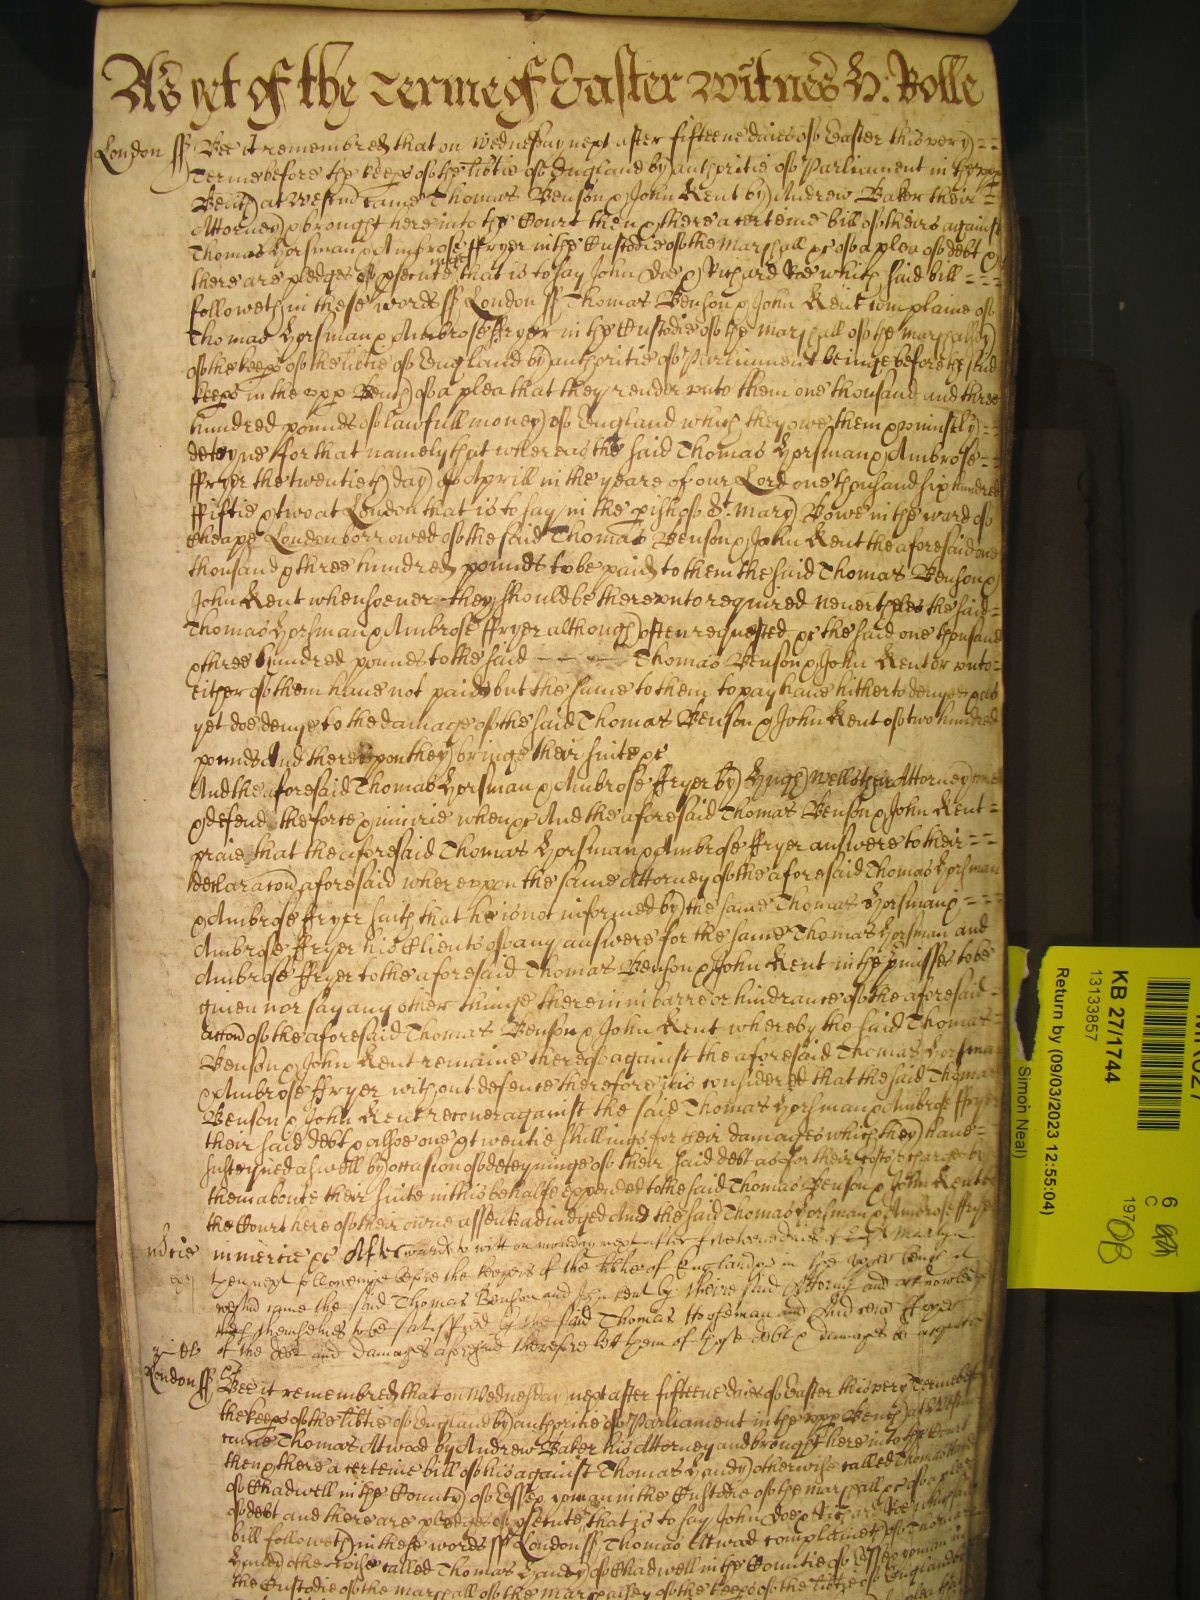 As yet of the Terme of Easter Witnes H: Rolle
London ss Bee it remembred that on Wednesday next after fifteene daies of Easter this very
Terme before the keeps of the libtie of England by authoritie of Parliament in the vpp
Bench at Westm came Thomas Benson & John Kent by Andrew Baker their
Attorney & brought here into the Court then & there a certeine bill of theirs against
Thomas Horsman & Ambrose ffryer in the Custodie of the Marshall &c of a plea of debt &
there are pledges of psecute that is to say John Doe & Richard Roe which said bill
followeth in these words ss London ss Thomas Benson & John Kent complaine of
Thomas Horsman & Ambrose ffryer in the Custodie of the Marshall of the Marshalsey
of the keeps of the libtie of England by authoritie of Parliament beinge before the said
keeps in the vpp Bench of a plea that they render vnto them one thousand and three
hundred pounds of lawfull money of England which they owe them & vniustly
deteyne ffor that namely that whereas the said Thomas Horsman & Ambrose
ffryer the twentieth day of Aprill in the yeare of our Lord one thousand six hundred
ffiftie & two at London that is to say in the pish of St. Mary Bowe in the ward of
Cheape London borrowed of the said Thomas Benson & John Kent the aforesaid one
thousand & three hundred pounds to be paid to them the said Thomas Benson &
John Kent whensoeuer they should be therevnto required neuertheles the said
Thomas Horsman & Ambrose ffryer although often requested &c the said one thousand
& three hundred pounds to the said Thomas Benson & John Kent or vnto
either of them haue not paid but the same to them to pay haue hitherto denyed & as
yet doe denye to the damage of the said Thomas Benson & John Kent of two hundred
pounds And therevpon they bringe their suite &c
And the aforesaid Thomas Horsman & Ambrose ffryer by Hugh Wells their Attorney come
& defend the force & iniurie when &c And the aforesaid Thomas Benson & John Kent
praie that the aforesaid Thomas Horsman & Ambrose ffryer answere to their
declaracon aforesaid wherevpon the same Attorney of the aforesaid Thomas Horsman
& Ambrose ffryer saith that he is not informed by the same Thomas Horsman &
Ambrose ffryer his Clients of any answere for the same Thomas Horsman and
Ambrose ffryer to the aforesaid Thomas Benson & John Kent in the pmisses to be
giuen nor say any other thinge therein in barre or hindrance of the aforesaid
accon of the aforesaid Thomas Benson & John Kent whereby the said Thomas
Benson & John Kent remaine thereof against the aforesaid Thomas Horsman
& Ambrose ffryer without defence therefore it is considered that the said Thomas
Benson & John Kent recouer against the said Thomas Horsman & Ambrose ffryer
their said debt & alsoe one & twentie shillings for their damages which they haue
susteyned aswell by occasion of deteyninge of their said debt as for their costs & charges by
them aboute their suite in this behalfe expended to the said Thomas Benson & John Kent by
the Court here of their owne assent adiudged And the said Thomas Horsman & Ambrose ffryer
in mercie &c Afterwards to witt on monday next after
then next followeinge before the keepers of the libtie of England in the vpper bench at
westm came the said Thomas Benson and John Kent by theire said Attorny and acknowledge
themselues to be satisffied by the said Thomas Horseman and Andrew ffryer
of the debt and damages aforesaid therefore let them of those debt & damages be acquitted
London ss Bee it remembred that on Wednesday next after fifteene daies of Easter this very Terme before
the keeps of the libtie of England by authoritie of Parliament in the vpp Bench at Westm
came Thomas Atwood by Andrew Baker his Attorney and brought here into the Court
then & there a certeine bill of his against Thomas Handy otherwise called Thomas Handy
of Chadwell in the County of Essex yoman in the Custodie of the Marshall &c of a plea
of debt and there are pledges of psecute that is to say John Doe & Richard Roe which said
bill followeth in these words ss London ss Thomas Atwood complaineth of Thomas
Handy otherwise called Thomas Handy of Chadwell in the Countie of Essex yoman in
the Custodie of the Marshall of the Marshalsey of the keeps of the libtie of England
KB 27/1744
13133857
Return by (09/03/2023 12:55:04)
Simon Neal)
6
C
197